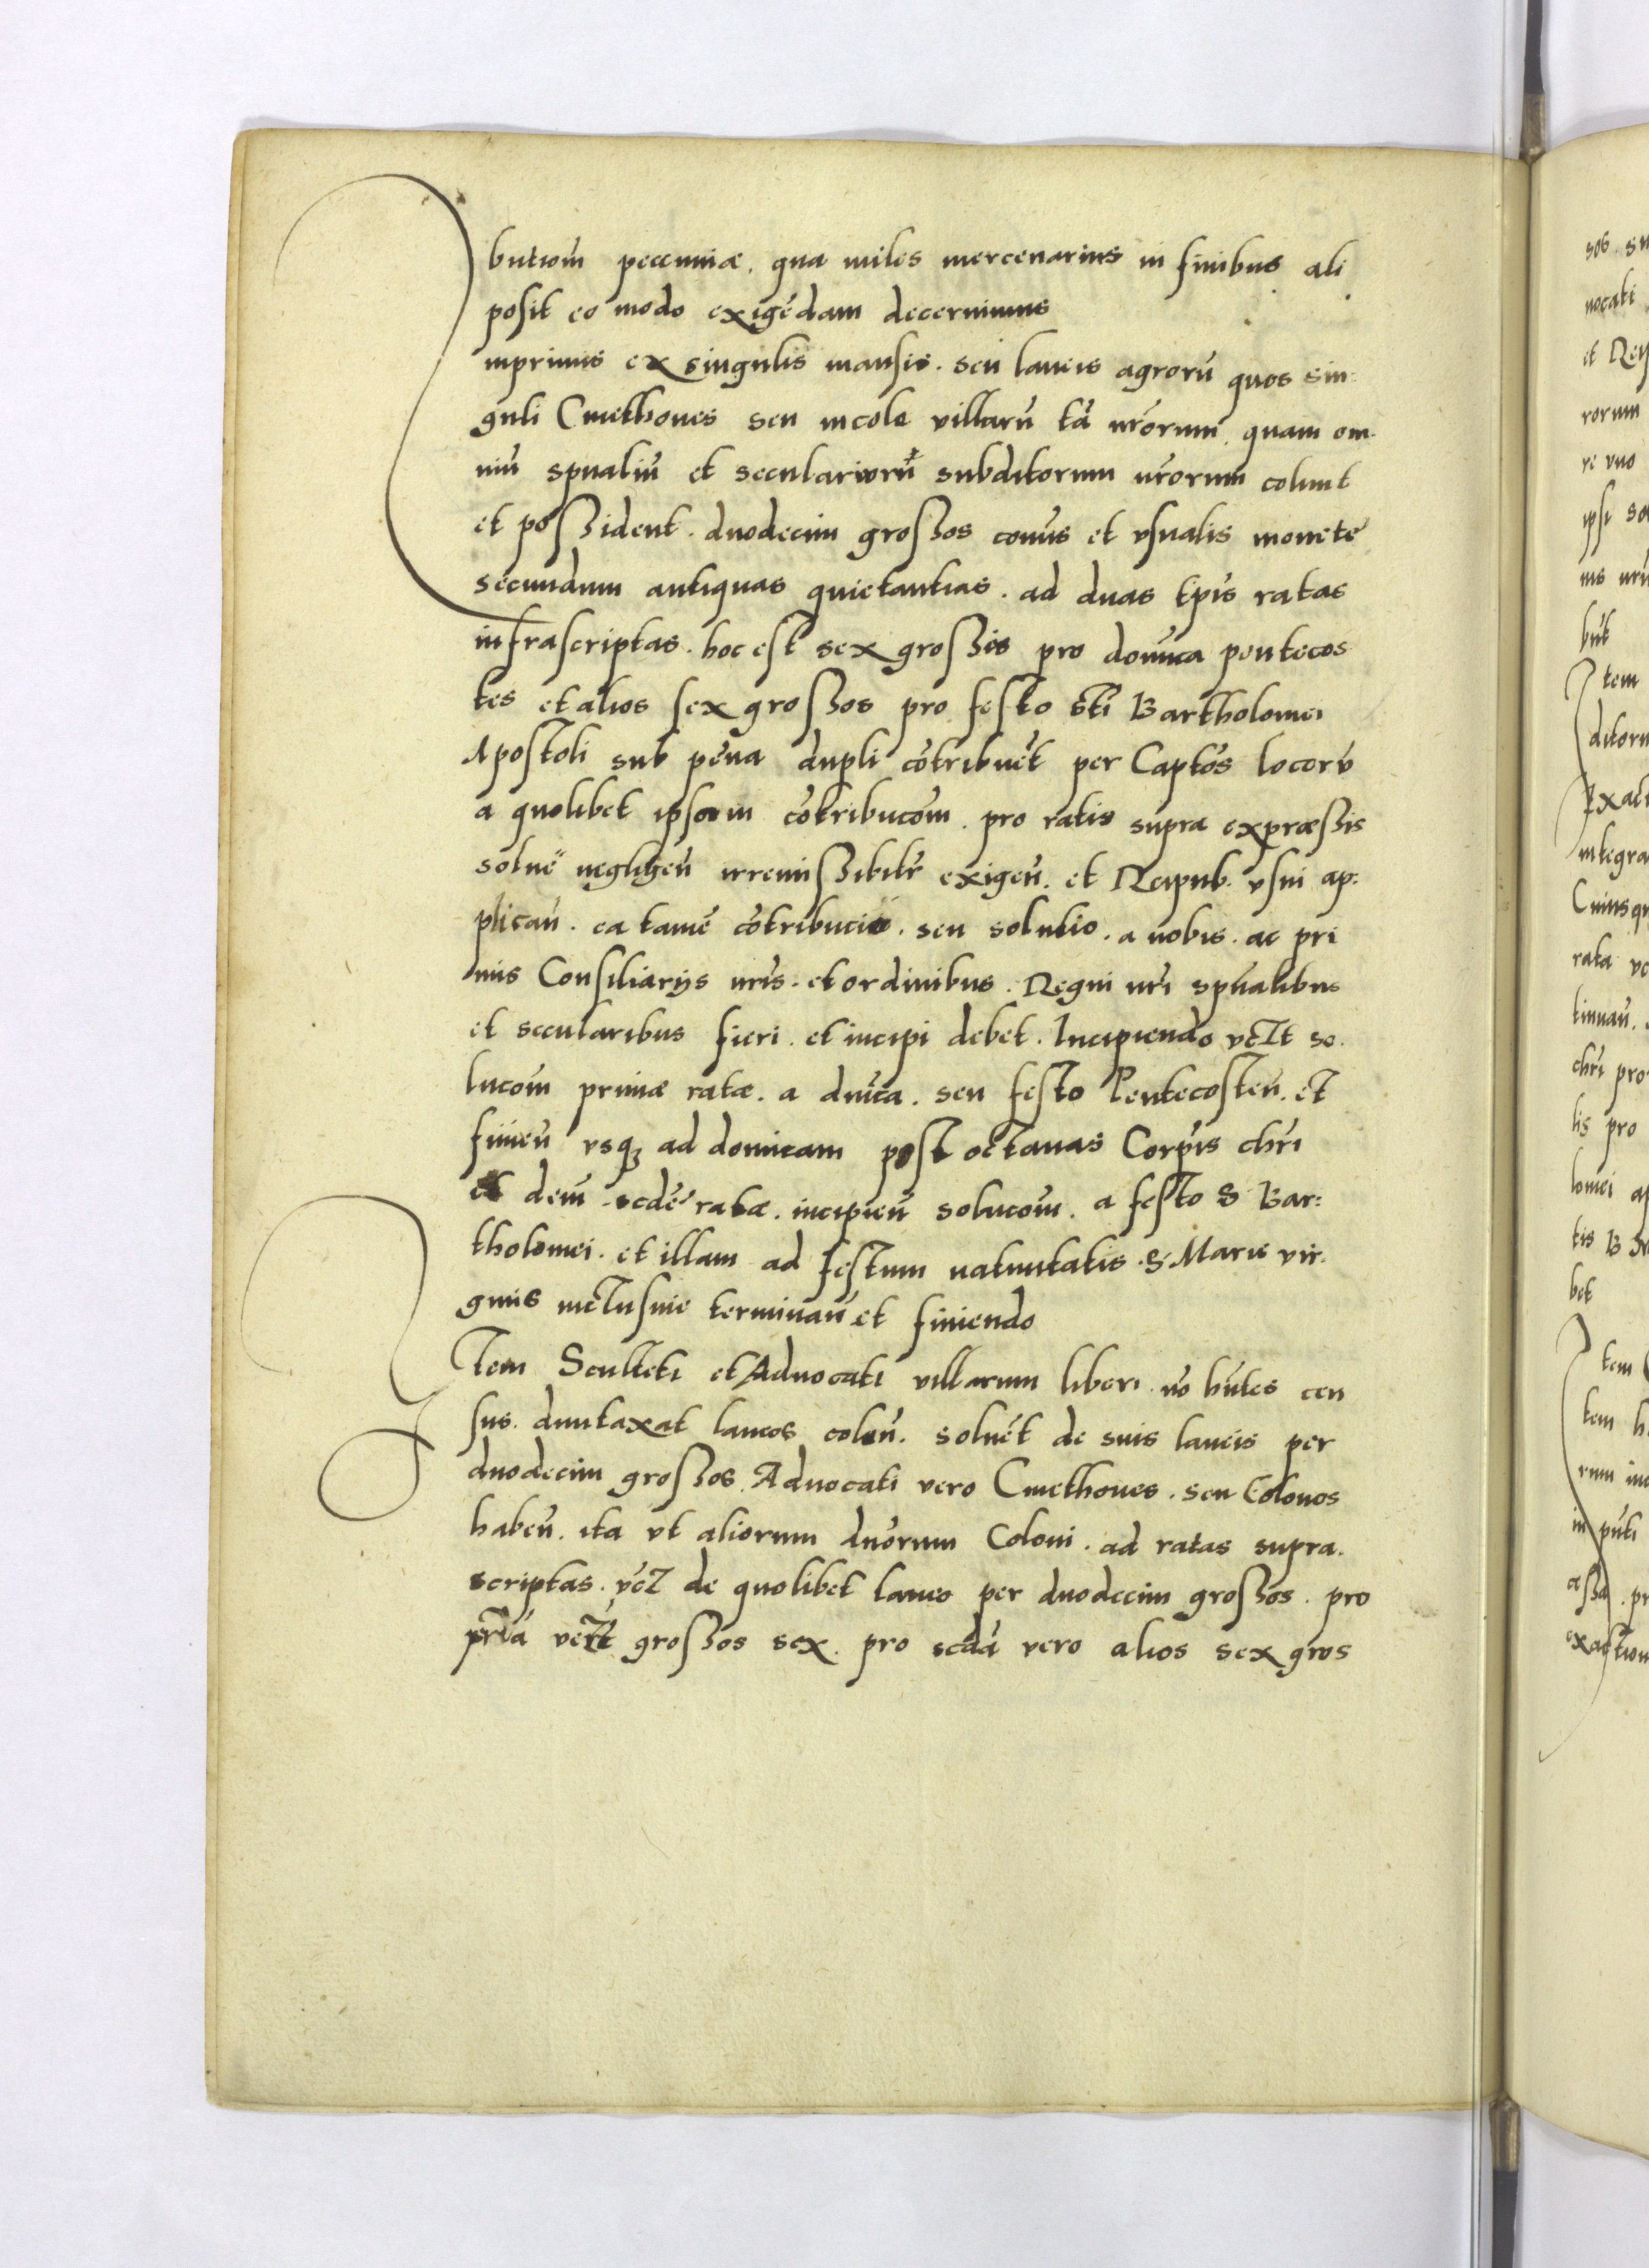 butiom̃ pecuniæ. qua miles mercenarius in finibus ali
posit eo modo exigẽdam decernimus
Inprimis ex singulis mansis. seu laneis agrorũ quos sin:
guli Cmethones seu incole villarũ tã nr̃orum quam om-
niũ sp̃ualiũ et seculariorũ subditorum nr̃orum colunt
et possident. duodecim grossos com̃is et vsualis monete
secundum antiquas quietantias. ad duas tp̃is ratas
infrascriptas. hoc est sex grossis pro domĩca pentecos
tes et alios sex grossos pro festo Sti Bartholomei
Apostoli sub pena dupli cõtribuẽt per Captõs locorũ
a quolibet ipsam cõtribucõm. pro ratis supra expræssis
solue negligen̄ irremissibilr̃ exigen̄. et Reipub. vsui ap:
plican̄. ea tamẽ cõtribucio. seu solutio. a nobis. ac pri
mis Consiliarijs nr̃is. et ordinibus. Regni nr̃i sp̃ualibus
et secularibus fieri. et incipi debet. Incipiendo vclt so.
lucom̃ primæ ratæ. a dnĩca. seu festo Pentecosten̄. et
finien̄ vsq₃ ad domicam post octauas Corpĩs chr̃i
et dein̄ scdẽ ratæ. incipien̄ solucom̃. a festo S Bar:
tholomei. et illam ad festum natiuitatis. S. Marie vir.
ginis inclusiue terminan̄ et finiendo
Item Sculteti et Aduocati villarum liberi nõ hñtes cen
sus. duntaxat laneos colen̄. soluẽt de suis laneis per
duodecim grossos. Aduocati vero Cmethones. seu Colonos
haben̄. ita vt aliorum dñorum Coloni. ad ratas supra.
scriptas. vclt de quolibet laneo per duodecim grossos. pro
pr̃ia vclt grossos sex. pro scdã vero alios sex gros